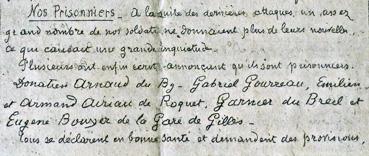 Nos Prisonniers _ A la suite des dernières attaques, un assez
grand nombre de nos soldats ne donnaient plus de leurs nouvelles
ce qui causait une grande inquiétude.
Plusieurs ont enfin écrit, annonçant qu'ils sont prisonniers.
Donatien Arnaud du Bg_ Gabriel Gourreau, Emilien
et Armand Auriau de Roquet, Garnier du Breil et
Eugène Bouyer de la Gare de Gilles_
Tous se déclarent en bonne santé et demandent des provisions.